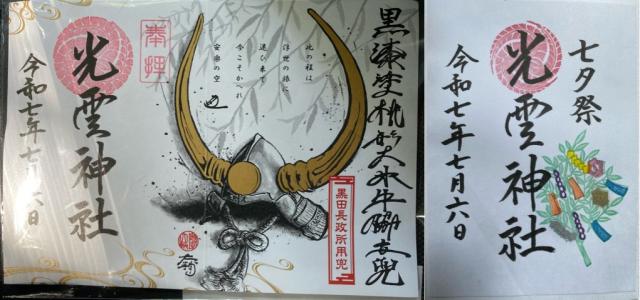 黒漆塗桃形大水牛脇立兜
黒田長政所用兜
此の程は
浮世の旅に
迷ひ来て
今こそかへれ
安楽の空
奉拝
光雲神社
令和七年七月六日
七夕祭
光雲神社
令和七年七月六日